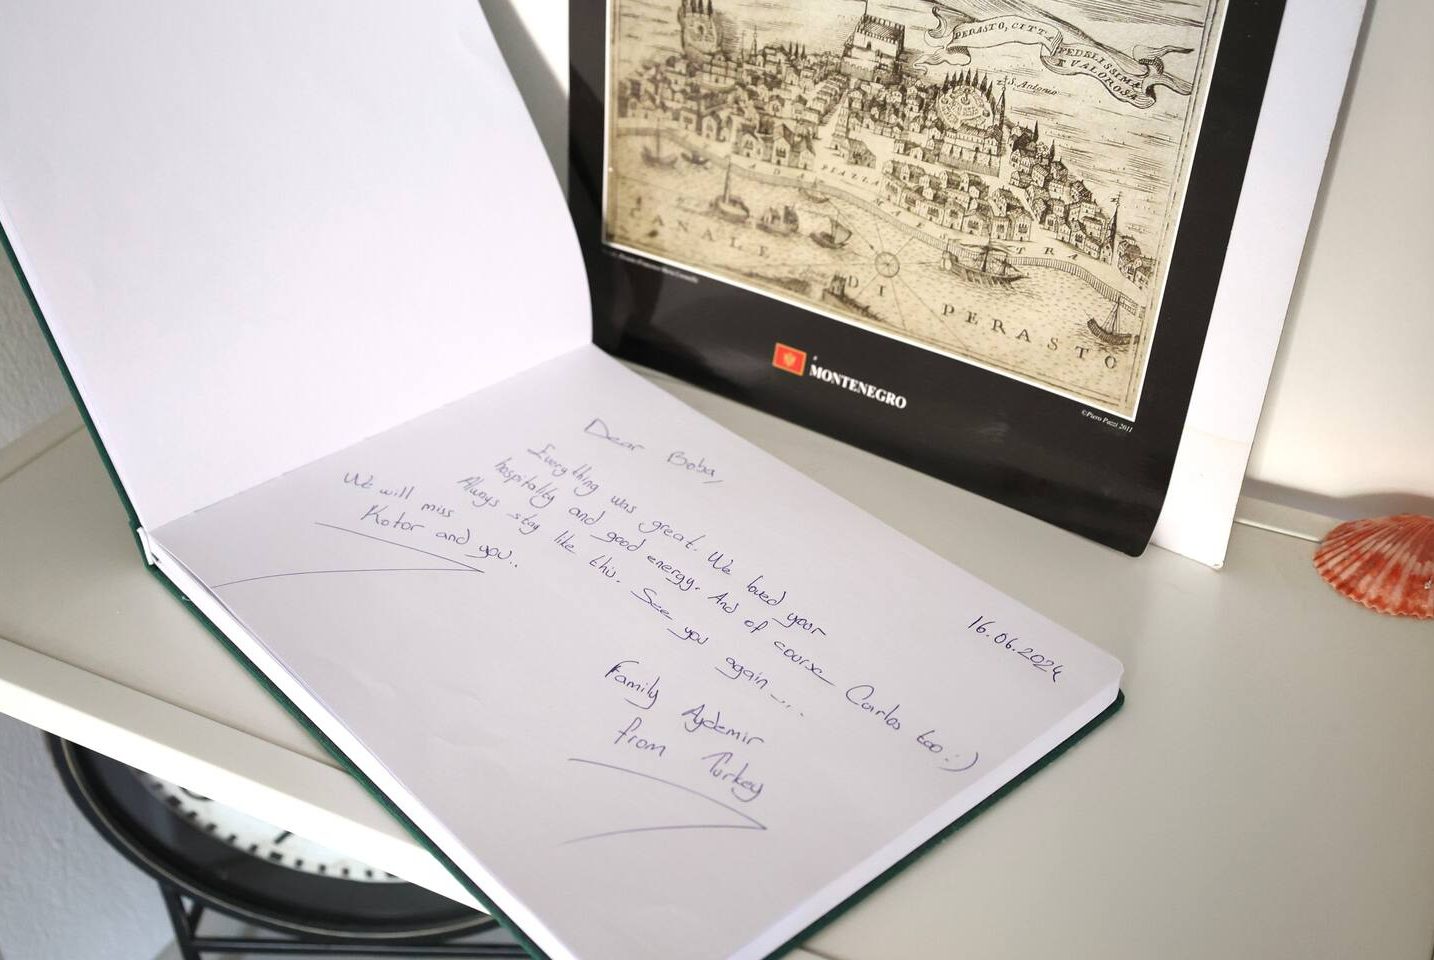 PERASTO, CITTA
FEDELISSIMA
E VALOROSA
S. Antonio
PIAZZA
CANALE DI PERASTO
MONTENEGRO
©Piero Pazzi 2011
16.06.2024
Dear Boba,
Everything was great. We loved your
hospitality and good energy. And of course Carlos too :)
Always stay like this. See you again....
We will miss
Kotor and you..
Family Aydemir
from Turkey